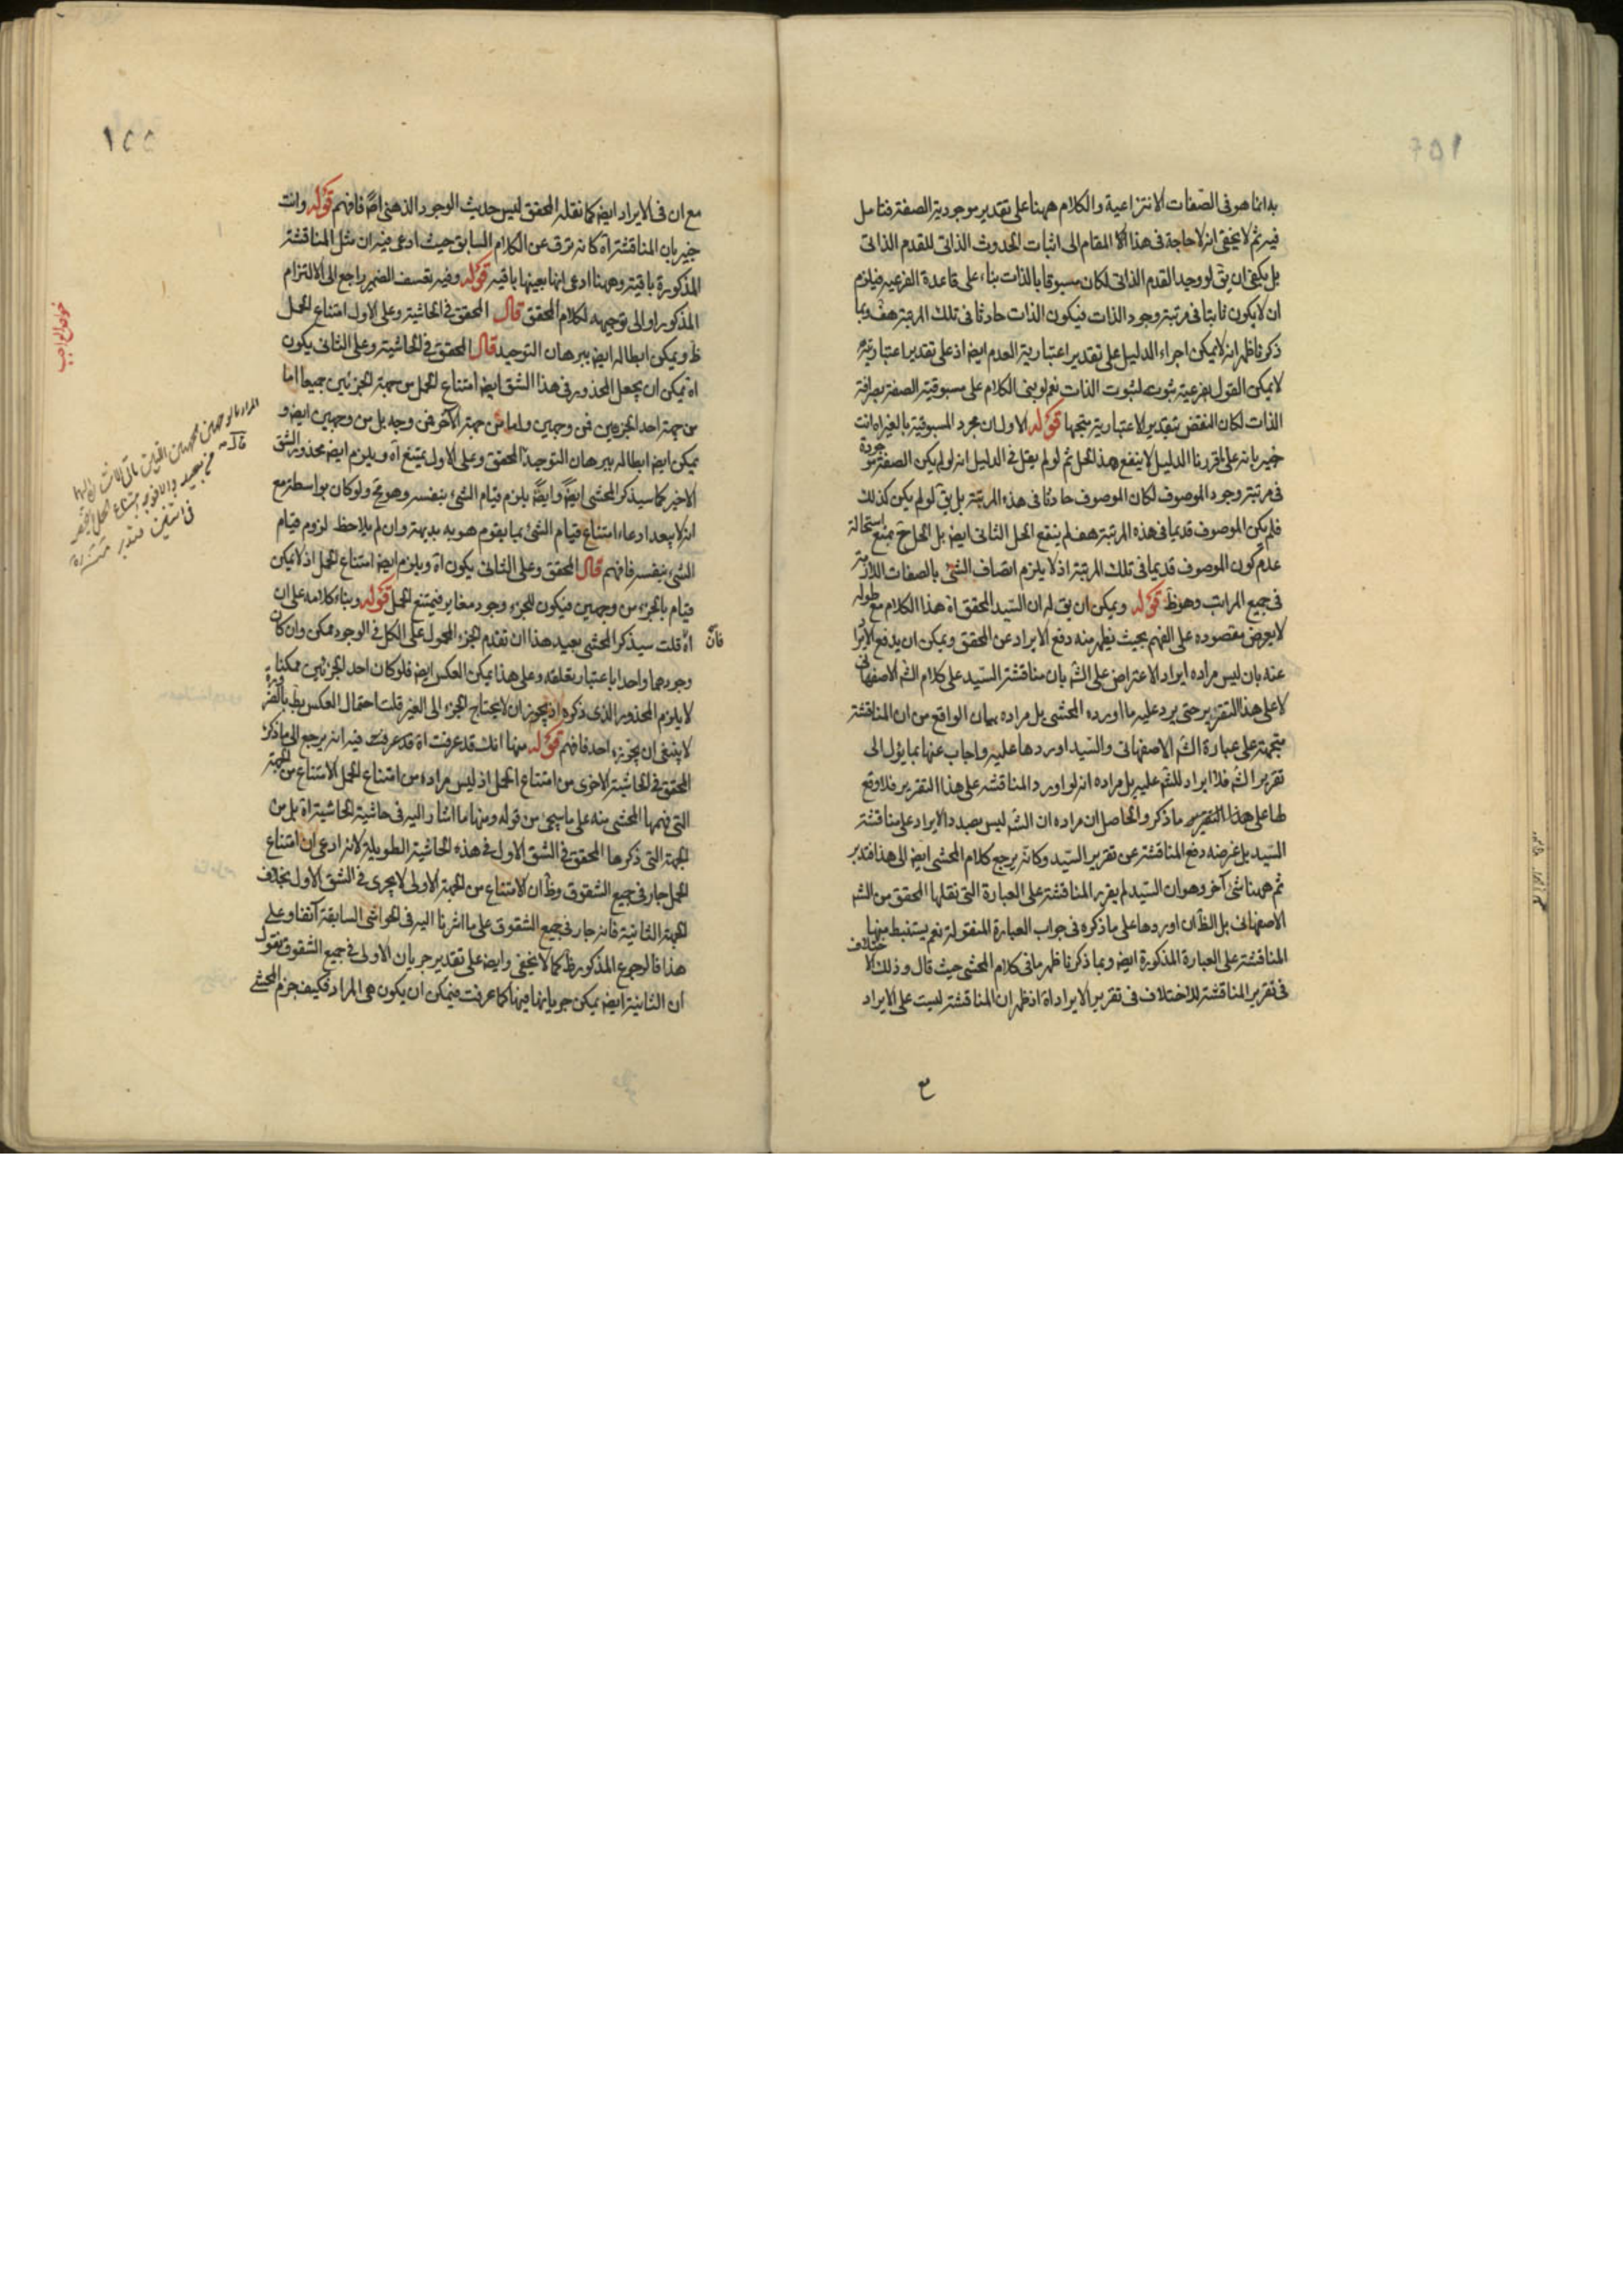 بداما هو فى الصفات الانتزاعية والكلام ههنا على تقدير موجودية الصفة فتامل
فيه ثم لا يخفى انه لا حاجة فى هذا المقام الى اثبات الحدوث الذاتى للقدم الذاتى
بل يكفى ان يق لو وجد القدم الذاتى لكان مسبوقا بالذات بناء على قاعدة الفرعية فيلزم
ان لا يكون ثابتا فى مرتبة وجود الذات فيكون الذات حادثا فى تلك المرتبة هف وبما
ذكر فاظهر انه لا يمكن اجراء الدليل على تقدير اعتبارية العدم ايضا اذ على تقدير اعتباريته
لا يمكن القول بفرعية ثبوته لثبوت الذات نعم لو بنى الكلام على مسبوقية الصفة بصرافة
الذات لكان النقض بتقدير الاعتبارية متجها قوله الاول ان مجرد المسبوقية بالغير اه انت
خبير بانه على ما قررنا الدليل لا ينفع هذا الحل ثم لو لم يقل فى الدليل انه لو لم يكن الصفة موجودة
فى مرتبة وجود الموصوف لكان الموصوف حادثا فى هذه المرتبة بل يق لو لم يكن كذلك
فلم يكن الموصوف قديما فى هذه المرتبة هف لم ينفع الحل الثانى ايضا بل الحل ح منع استحالة
عدم كون الموصوف قديما فى تلك المرتبة اذ لا يلزم اتصاف الشئ بالصفات اللازمة
فى جميع المراتب وهو ظ قوله ويمكن ان يق له ان السيد المحقق اه هذا الكلام مع طوله
لا يعرض مقصوده على الفهم بحيث يظهر منه دفع الايراد عن المحقق ويمكن ان يدفع الايراد
عنه بان ليس مراده ايراد الاعتراض على الش بان مناقشة السيد على كلام الش الاصفهانى
لا على هذا التقرير حتى يرد عليه ما اورده المحشى بل مراده بيان الواقع من ان المناقشة
متجهة على عبارة الش الاصفهانى والسيد اوردها عليه واجاب عنها بما يؤل الى
تقرير الش فلا ايراد للش عليه بل مراده انه لو اورد المناقشة على هذا التقرير فلا وقع
لها على هذا التقرير ما ذكر والحاصل ان مراده ان الش ليس بصدد الايراد على مناقشة
السيد بل غرضه دفع المناقشة عن تقرير السيد وكانه يرجع كلام المحشى ايضا الى هذا فتدبر
ثم ههنا شئ آخر وهو ان السيد لم يقرر المناقشة على العبارة التى نقلها المحقق من الش
الاصفهانى بل الظ ان اوردها على ما ذكره فى جواب العبارة المنقولة نعم يستنبط منها
المناقشة على العبارة المذكورة ايضا وبما ذكرنا ظهر ما فى كلام المحشى حيث قال وذلك لاختلاف
فى تقرير المناقشة للاختلاف فى تقرير الايراد اه اذ ظهر ان المناقشة ليست على الايراد
مع ان فى الايراد ايضا كما نقله المحقق ليس حديث الوجود الذهنى اصلا فافهم قوله وانت
خبير بان المناقشة اه كانه ترق عن الكلام السابق حيث ادعى فيه ان مثل المناقشة
المذكورة باقية وههنا ادعى انها بعينها باقية قوله وفيه تعسف الضمير راجع الى الالتزام
المذكور او الى توجيهه لكلام المحقق قال المحقق فى الحاشية وعلى الاول امتناع الحمل
ظ ويمكن ابطاله ايضا ببرهان التوحيد قال المحقق فى الحاشية وعلى الثانى يكون
اه يمكن ان يجعل المحذور فى هذا الشق ايضا امتناع الحمل من جهة الجزئين جميعا اما
من جهة احد الجزءين فمن وجهين واما من جهة الآخر فمن وجه بل من وجهين ايضا و
يمكن ايضا ابطاله ببرهان التوحيد المحقق وعلى الاول يمتنع اه ويلزم ايضا محذور الشق
الاخير كما سيذكر المحشى ايضا وايضا يلزم قيام الشئ بنفسه وهو مح ولو كان بواسطة مع
انه لا يبعد ادعاء امتناع قيام الشئ بما يقوم هو به بديهة وان لم يلاحظ لزوم قيام
الشئ بنفسه فافهم قال المحقق وعلى الثانى يكون اه ويلزم ايضا امتناع الحمل اذ لا يمكن
قيام بالجزء من وجهين فيكون للجزء وجود مغاير فيمتنع الحمل قوله وبناء كلامه على ان
اه قلت سيذكر المحشى بعيد هذا ان تقدم الجزء المحمول على الكل فى الوجود ممكن وان كان
وجودهما واحدا باعتبار تعلقه وعلى هذا يمكن العكس ايضا فلو كان احد الجزئين ممكنا
لا يلزم المحذور الذى ذكره اذ يجوز ان لا يحتاج الجزء الى الغير قلت احتمال العكس بط بالضرورة
لا ينبغى ان يجوزه احد فافهم قوله منها انك قد عرفت اه قد عرفت فيه انه يرجع الى ما ذكره
المحقق فى الحاشية الاخرى من امتناع الحمل اذ ليس مراده من امتناع الحمل الامتناع من الجهة
التى فهمها المحشى منه على ما سيجئ من قوله ومنها ما اشار اليه فى حاشية الحاشية اه بل من
الجهة التى ذكرها المحقق فى الشق الاول فى هذه الحاشية الطويلة لانه ادعى ان امتناع
الحمل جار فى جميع الشقوق وظ ان الامتناع من الجهة الاولى لا يجرى فى الشق الاول بخلاف
الجهة الثانية فانه جار فى جميع الشقوق على ما اشرنا اليه فى الحواشى السابقة آنفا وعلى
هذا فالرجوع المذكور ظ كما لا يخفى وايضا على تقدير جريان الاولى فى جميع الشقوق نقول
ان الثانية ايضا يمكن جريانها فيها كما عرفت فيمكن ان يكون هى المراد فكيف جزم المحشى
١٥٥